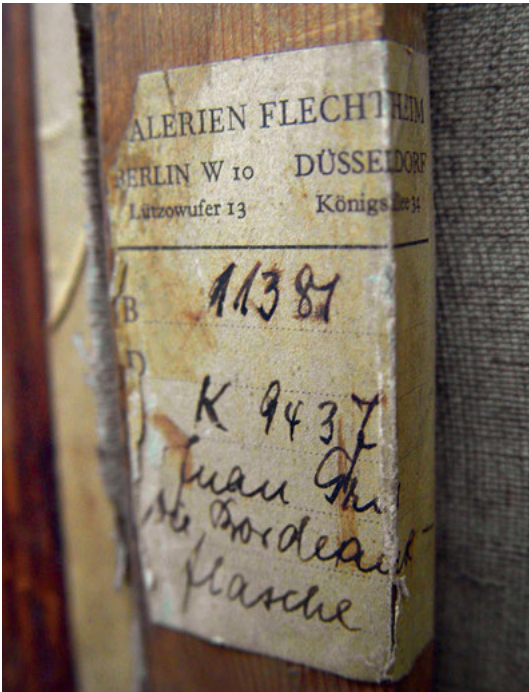 ALERIEN FLECHTHEIM
BERLIN W 10 DÜSSELDORF
Lützowufer 13 Königsallee 34
B 11381
D
K 9437
Juan Gris
Die Bordeaux
flasche